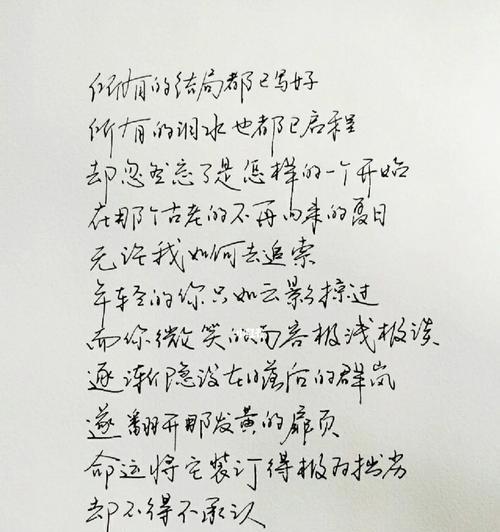 所有的结局都已写好
所有的泪水也都已启程
却忽然忘了是怎样的一个开始
在那个古老的不再回来的夏日
无论我如何去追索
年轻的你只如云影掠过
而你微笑的面容极浅极淡
逐渐隐没在日落后的群岚
遂翻开那发黄的扉页
命运将它装订得极为拙劣
却不得不承认